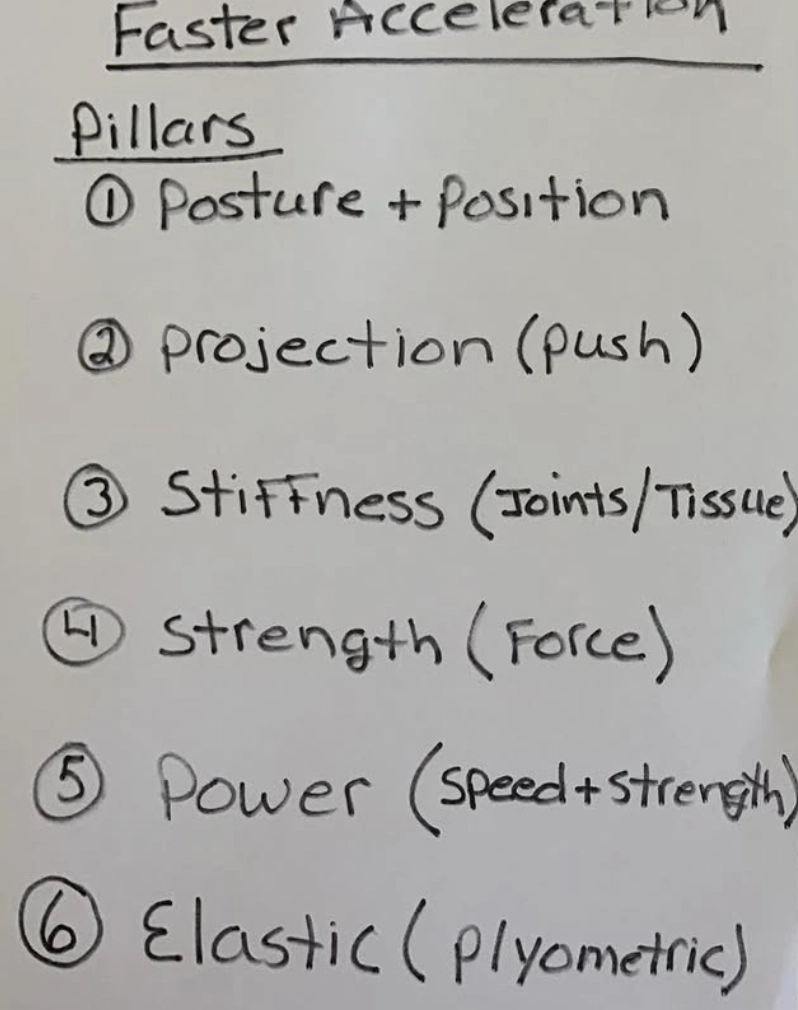 Faster Acceleration
Pillars
① Posture + Position
② Projection (push)
③ Stiffness (Joints/Tissue)
④ Strength (Force)
⑤ Power (Speed + Strength)
⑥ Elastic (Plyometric)